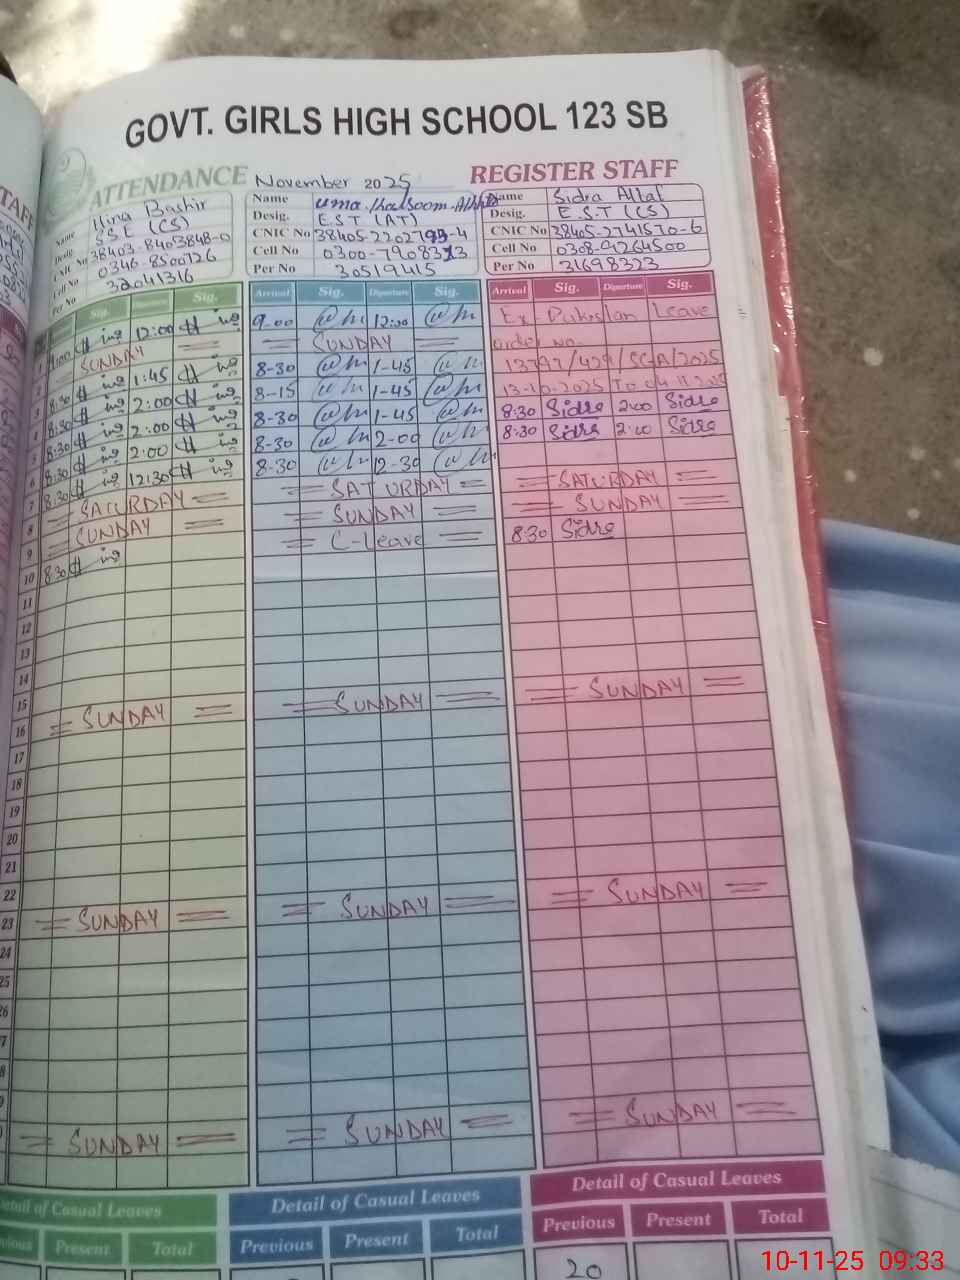 GOVT. GIRLS HIGH SCHOOL 123 SB
ATTENDANCE November 2025 REGISTER STAFF
Name Hina Bashir
Desig. S.S.E (CS)
CNIC No 38403-8403848-0
Cell No 0346-8500726
Per No 32041316
Name
Desig. E.S.T (AT)
CNIC No 38405-2202793-4
Cell No
Per No 30519415
Name Sidra Altaf
Desig. E.S.T (CS)
CNIC No 38405-2741570-6
Cell No 0308-9264500
Per No 31698323
Sig. Sig.
Arrival Sig. Diparture Sig.
Arrival Sig. Diparture Sig.
1 9:00 12:00 9-00 12:00 Ex Pakistan Leave
2 SUNDAY SUNDAY order no.
3 8:30 1:45 8-30 1-45
4 8:30 2:00 8-15 1-45 13-10-2025 To 04.11.2025
5 8:30 2:00 8-30 1-45 8:30 Sidra 2:00 Sidra
6 8:30 2:00 8-30 2-00 8:30 Sidra 2:00 Sidra
7 8:30 12:30 8-30 12-30
8 SATURDAY SATURDAY SATURDAY
9 SUNDAY SUNDAY SUNDAY
10 8:30 C-Leave 8:30 Sidra
11
12
13
14
15
16 SUNDAY SUNDAY SUNDAY
17
18
19
20
21
22
23 SUNDAY SUNDAY SUNDAY
24
25
26
SUNDAY SUNDAY SUNDAY
Detail of Casual Leaves Detail of Casual Leaves Detail of Casual Leaves
Previous Present Total Previous Present Total Previous Present Total
20
10-11-25 09:33